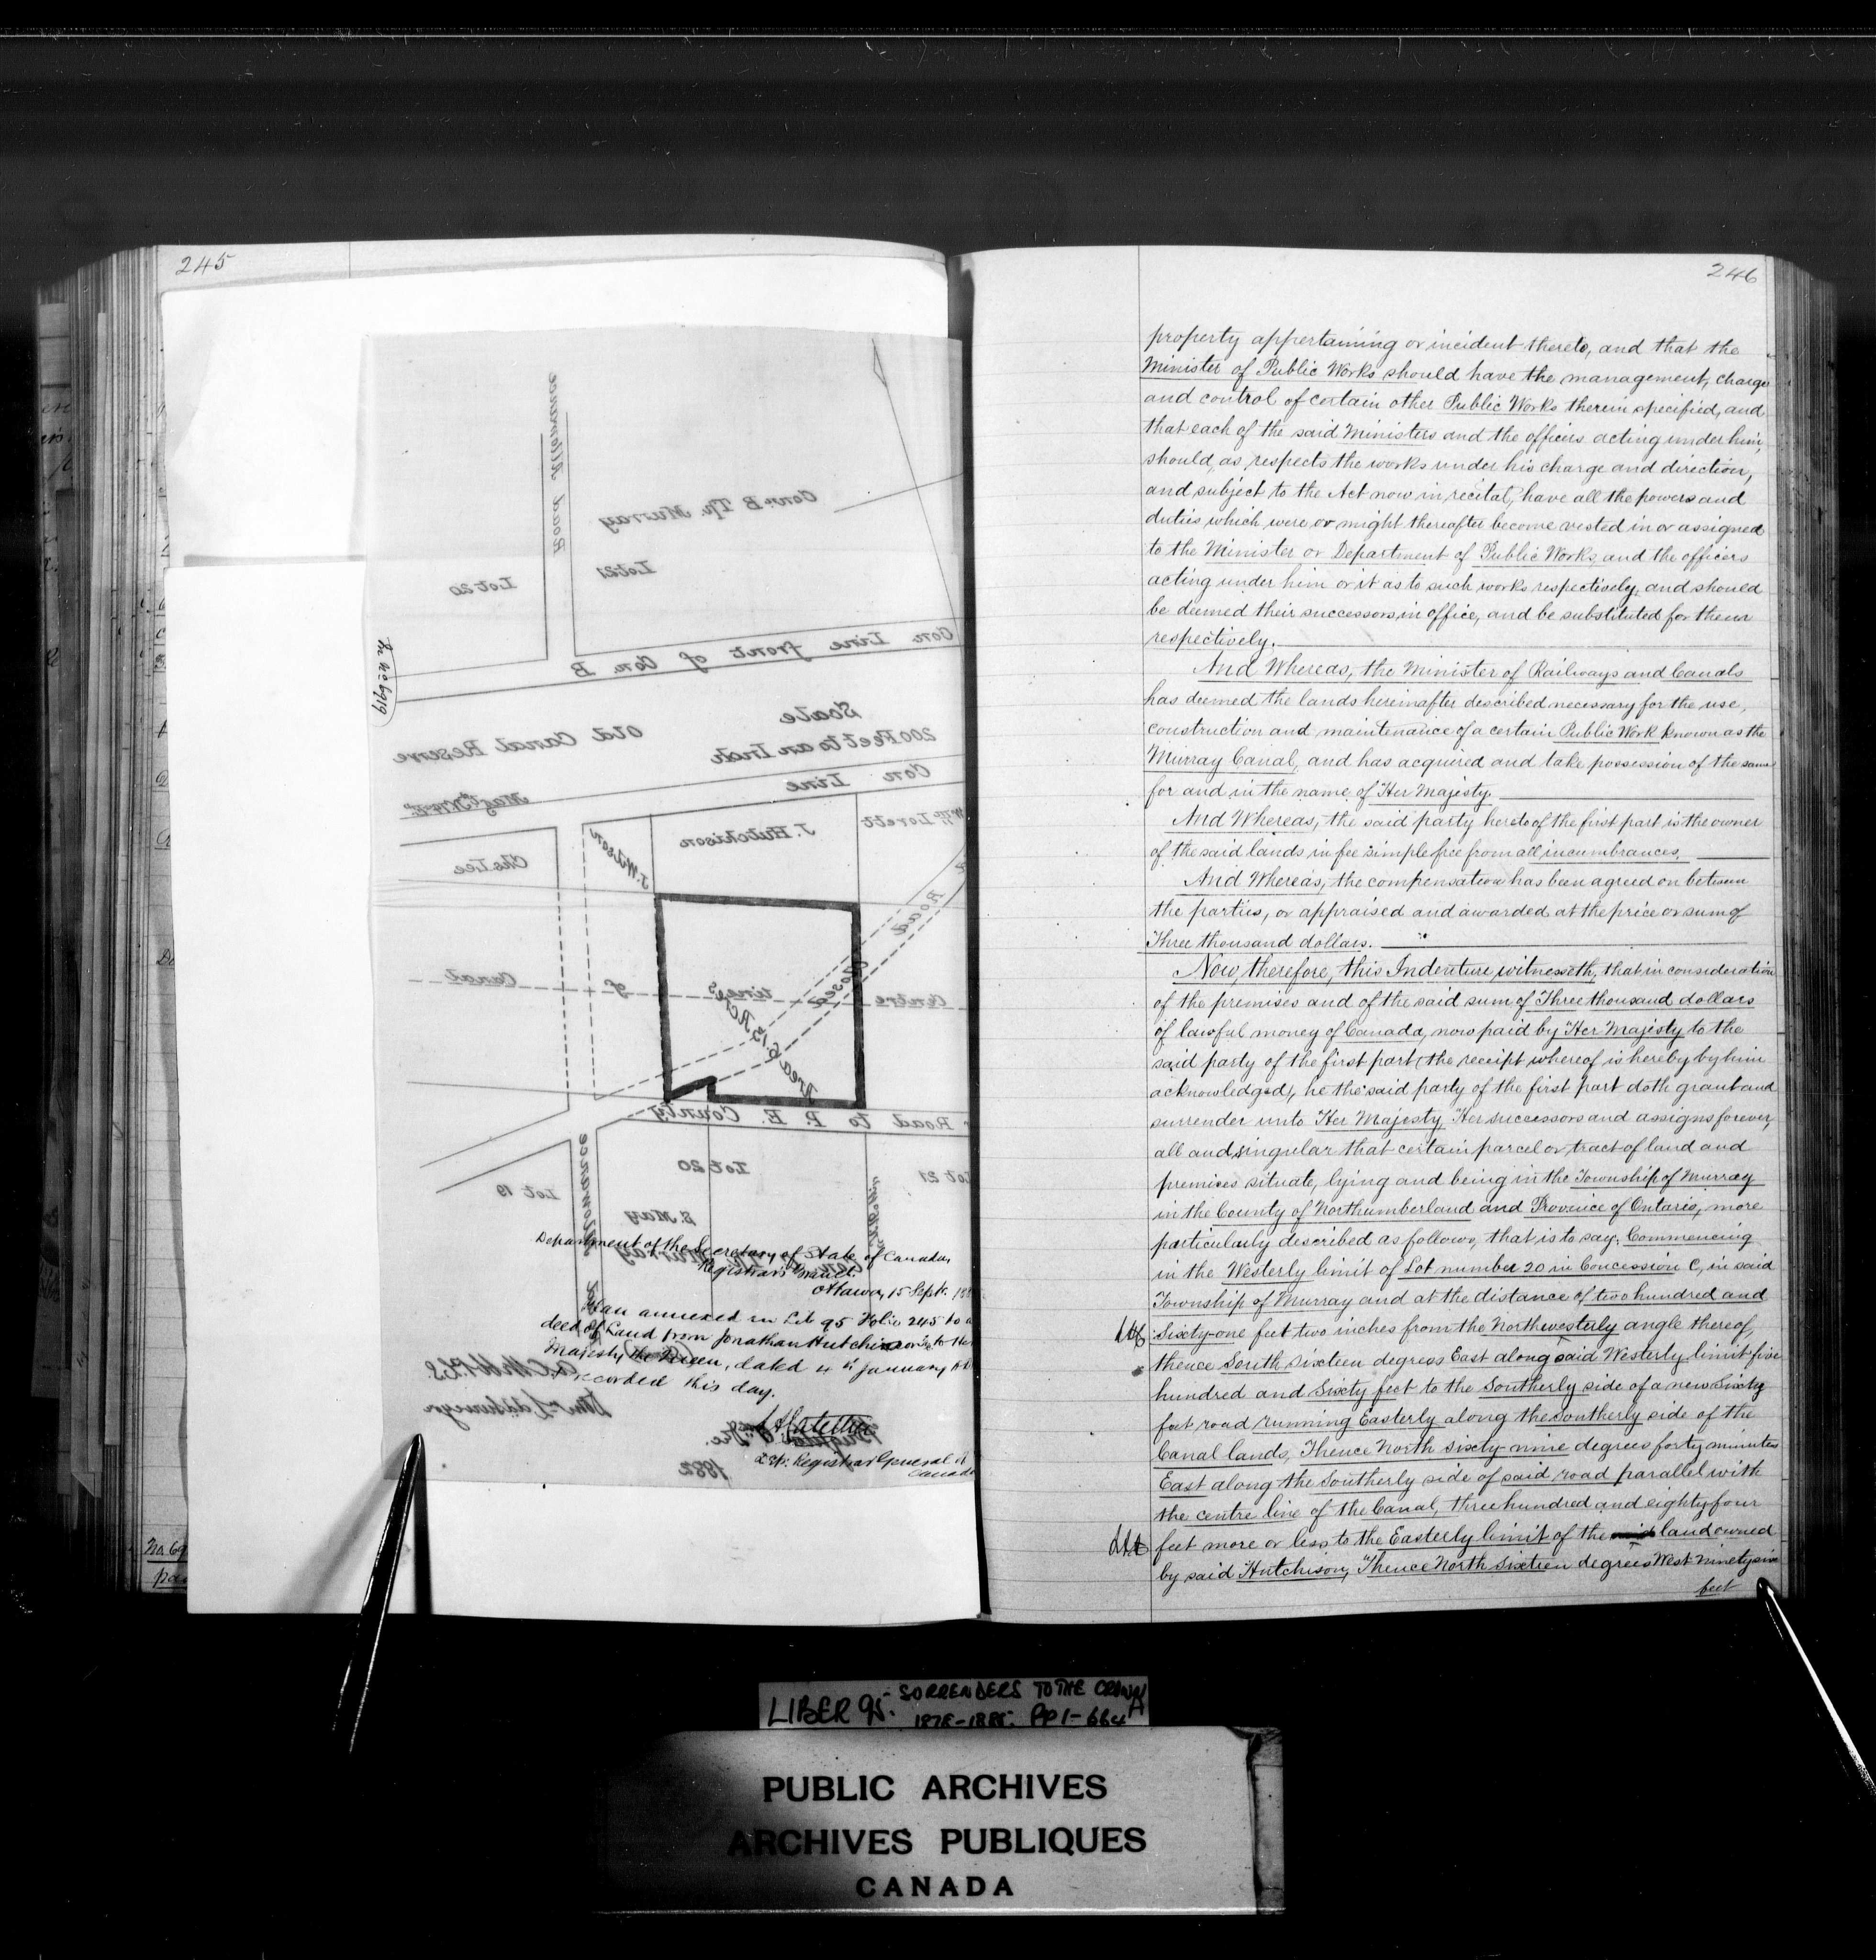 245
Road Allowance
Con. B Tp. Murray
Lot 21
Lot 20
Con Line front of Con. B
Scale
200 Feet to an Inch
Old Canal Reserve
Con Line
Wm Lovett
J. Hutchison
J. Wilson
Chs Lee
Road
Closed
Centre line of Canal
Area 5.15 Ac
Road to P. E. County
Lot 21
Lot 20
Lot 19
S. May
Allowance
Murray
Department of the Secretary of State of Canada,
Registrar's Branch.
Ottawa, 15 Sept. 188
Plan annexed in Lib 95 Folio 245 to a
deed of Land from Jonathan Hutchinson to Her
Majesty the Queen, dated 4th January
recorded this day.
Dep. Registrar General of
Canada
1882
246
property appertaining or incident thereto, and that the
Minister of Public Works should have the management, charge
and control of certain other Public Works therein specified, and
that each of the said Ministers and the officers acting under him,
should, as respects the works under his charge and direction,
and subject to the Act now in recital, have all the powers and
duties which were or might thereafter become vested in or assigned
to the Minister or Department of Public Works, and the officers
acting under him or it as to such works respectively, and should
be deemed their successors in office, and be substituted for them
respectively.
And Whereas, the Minister of Railways and Canals
has deemed the lands hereinafter described necessary for the use,
construction and maintenance of a certain Public Work known as the
Murray Canal, and has acquired and take possession of the same
for and in the name of Her Majesty.
And Whereas, the said party hereto of the first part is the owner
of the said lands in fee simple free from all incumbrances,
And Whereas, the compensation has been agreed on between
the parties, or appraised and awarded at the price or sum of
Three thousand dollars.
Now, therefore, this Indenture witnesseth, that in consideration
of the premises and of the said sum of Three thousand dollars
of lawful money of Canada, now paid by Her Majesty to the
said party of the first part (the receipt whereof is hereby by him
acknowledged), he the said party of the first part doth grant and
surrender unto Her Majesty, Her successors and assigns forever,
all and singular that certain parcel or tract of land and
premises situate, lying and being in the Township of Murray
in the County of Northumberland and Province of Ontario, more
particularly described as follows, that is to say: Commencing
in the Westerly limit of Lot number 20 in Concession C, in said
Township of Murray and at the distance of two hundred and
Sixty-one feet two inches from the Northwesterly angle thereof,
thence South sixteen degrees East along said Westerly limit five
hundred and Sixty feet to the Southerly side of a new Sixty
feet road running Easterly along the Southerly side of the
Canal lands, Thence North sixty-nine degrees forty minutes
East along the Southerly side of said road parallel with
the centre line of the Canal, three hundred and eighty four
feet more or less to the Easterly limit of the land owned
by said Hutchison, Thence North Sixteen degrees West ninety six
feet
LIBER 95. SORRENDERS TO THE CROWN
1878-1885. PP 1-664
PUBLIC ARCHIVES
ARCHIVES PUBLIQUES
CANADA